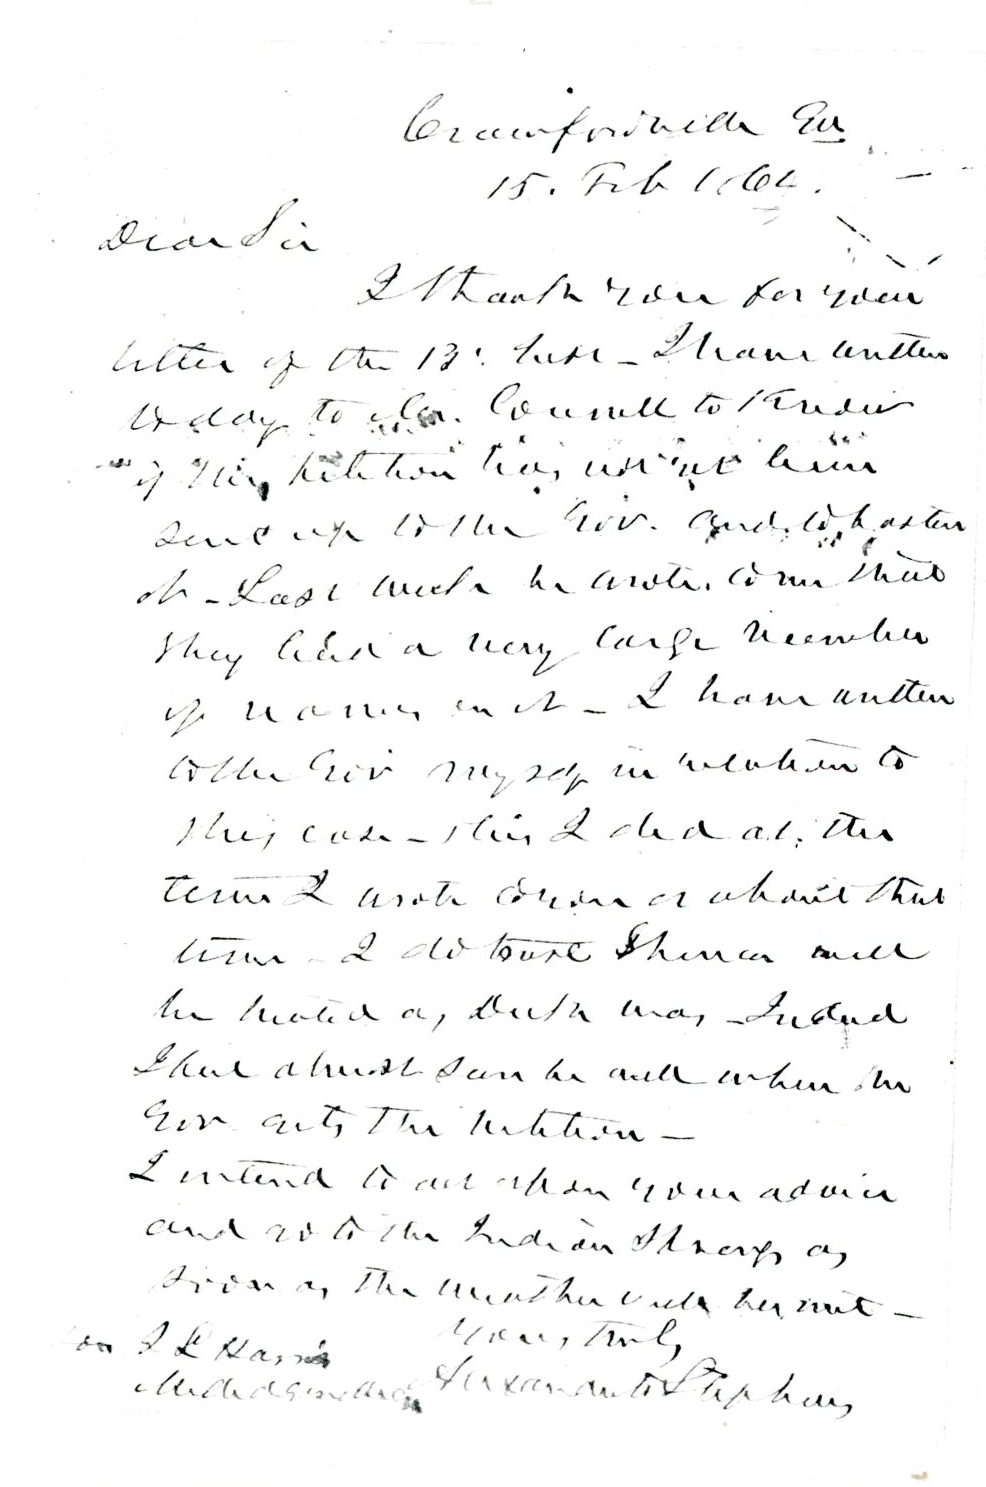 Crawfordville Ga
15. Feb 1864.
Dear Sir
I thank you for your
letter of the 13th inst – I have written
to day to Mr. Connell to know
if the petition has not yet been
sent up to the Gov. and to hasten
it – Last week he wrote to me that
they had a very large number
of names on it – I have written
to the Gov myself in relation to
this case – this I did at the
time I wrote to you or about that
time – I do trust will
be treated as was – Indeed
I feel almost sure he will when the
Gov gets the petition –
I intend to act upon your advice
and go to the Indian Springs as
soon as the weather will permit –
Yours truly
Alexander H Stephens
Hon I L Harris
Milledgeville